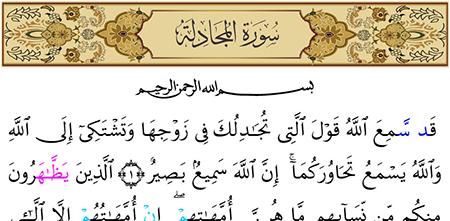 سُورَةُ المُجَادِلَةِ
بسم الله الرحمن الرحيم
قَد سَّمِعَ اللَّهُ قَوْلَ الَّتِي تُجَٰدِلُكَ فِي زَوْجِهَا وَتَشْتَكِيٓ إِلَى اللَّهِ
وَاللَّهُ يَسْمَعُ تَحَاوُرَكُمَآ إِنَّ اللَّهَ سَمِيعُۢ بَصِيرٌ ١ الَّذِينَ يَظَّٰهَرُونَ
مِنكُم مِّن نِّسَآئِهِم مَّا هُنَّ أُمَّهَٰتِهِمْ إِنْ أُمَّهَٰتُهُمْ إِلَّا